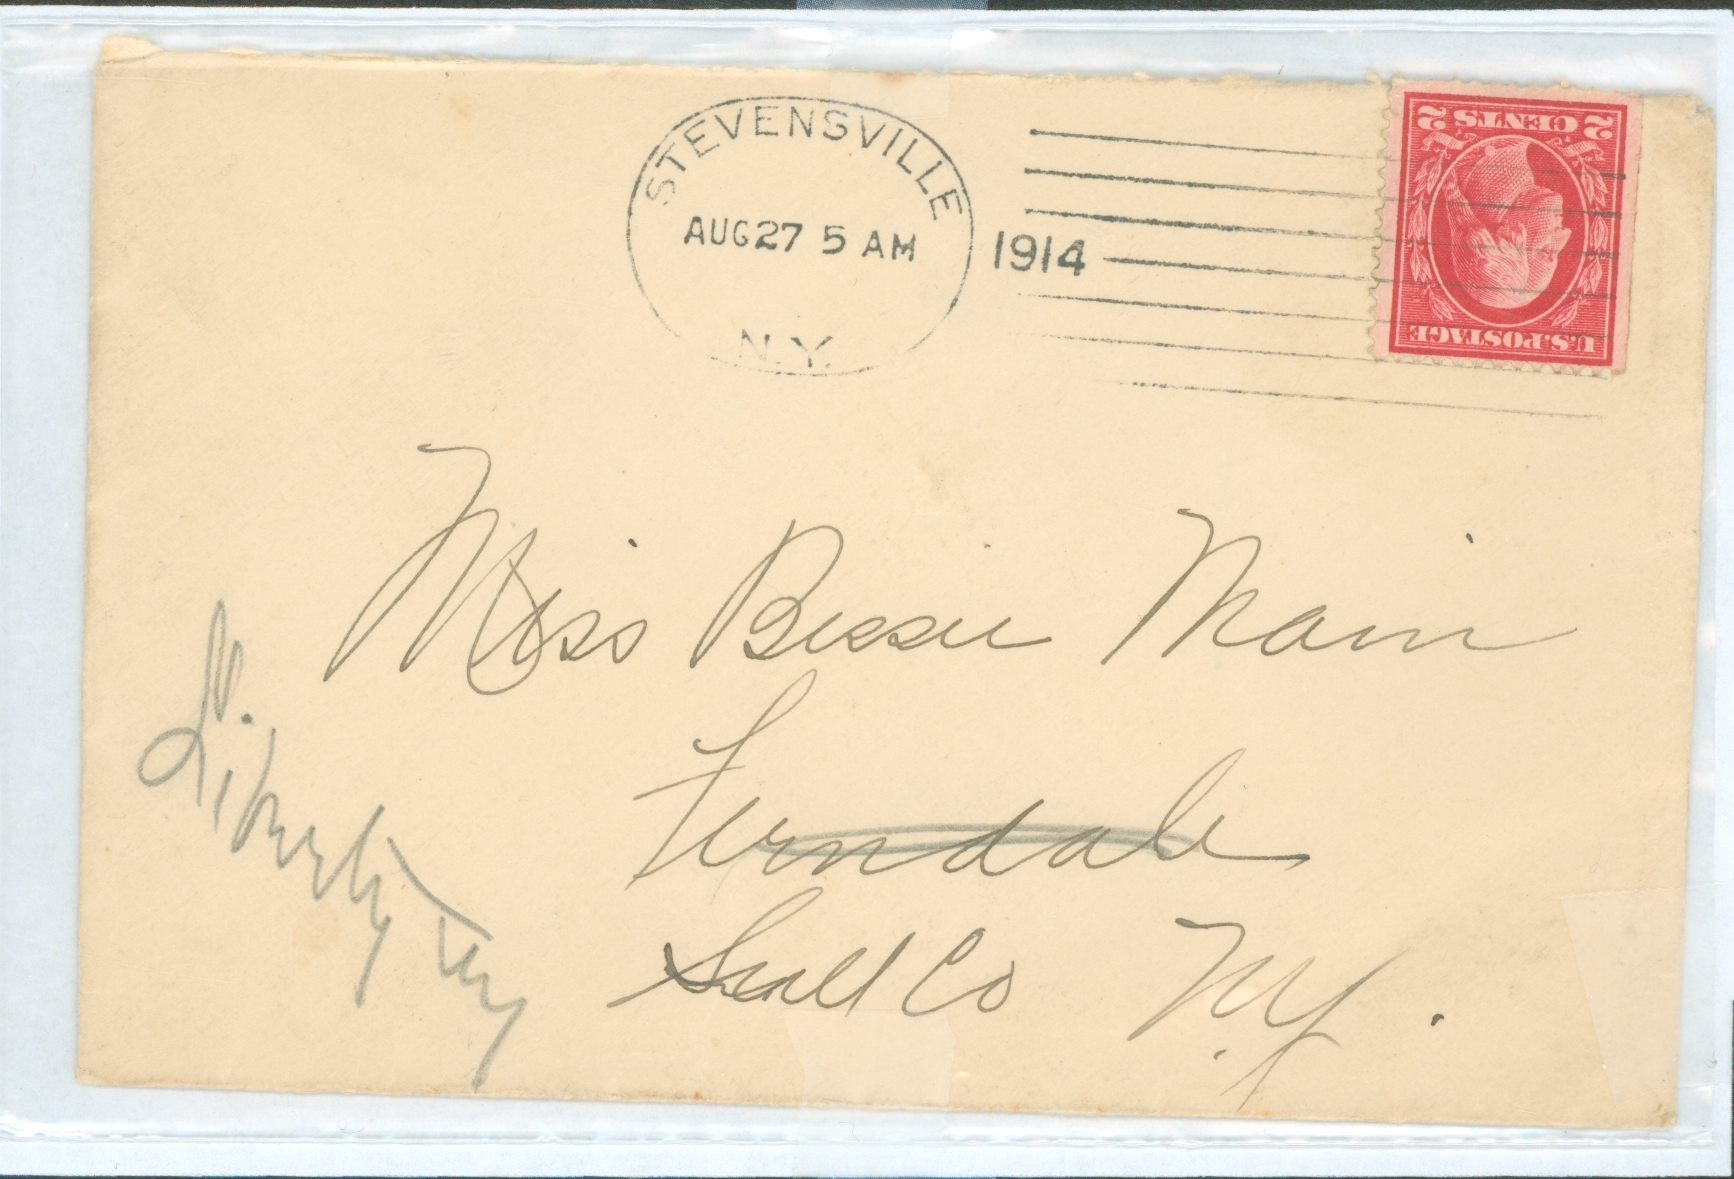 STEVENSVILLE
AUG 27 5 AM
N.Y.
1914
2 CENTS 2
U.S. POSTAGE
Miss Bessie Main
Ferndale
Sull Co N.Y.
Liberty
NY